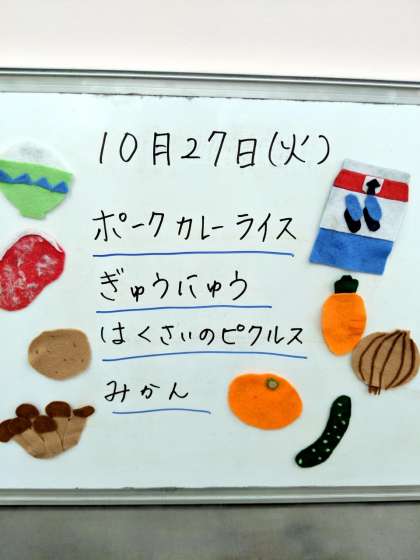 10月27日(火)
ポークカレーライス
ぎゅうにゅう
はくさいのピクルス
みかん